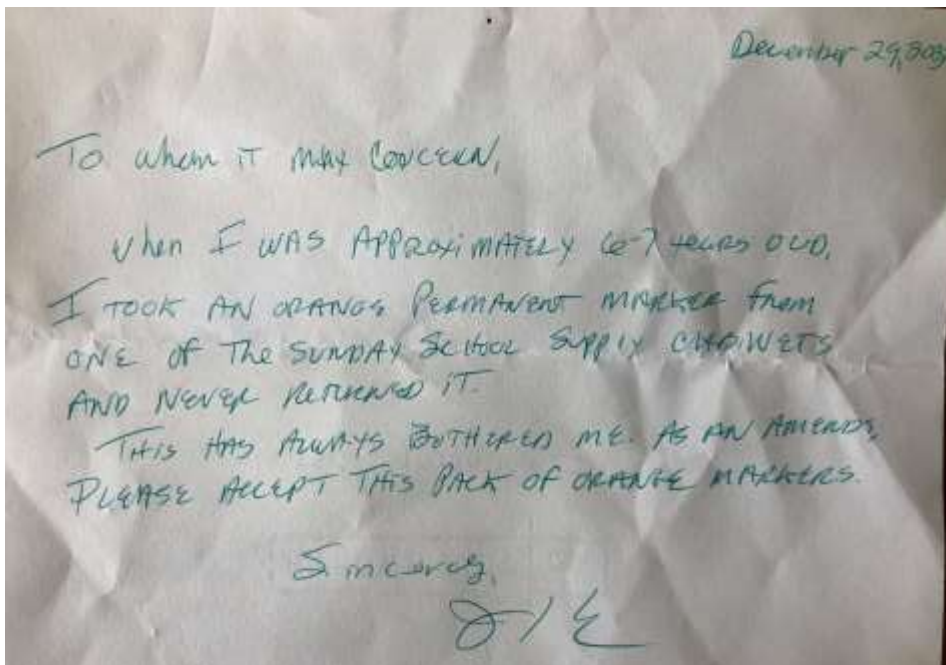 December 29,
To whom it may concern,
when I was approximately 6-7 years old,
I took an orange permanent marker from
one of the Sunday School supply cabinets
and never returned it.
This has always bothered me. As an amends,
please accept this pack of orange markers.
Sincerely,